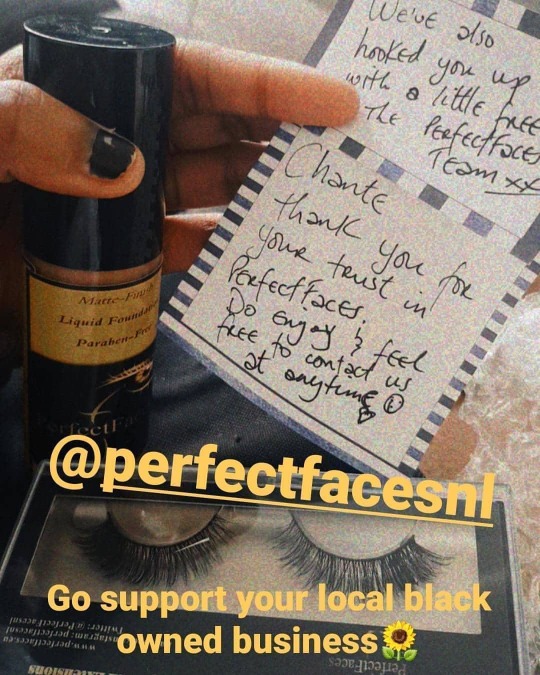 We've also
hooked you up
with a little free
The PerfectFaces
Team xx
Chante
thank you for
your trust in
PerfectFaces.
Do enjoy & feel
free to contact us
at anytime
Matte-Finish
Liquid Foundat
Paraben-Free
PerfectFa
@perfectfacesnl
Go support your local black
owned business🌻
www.perfectfaces.eu
Instagram: perfectfacesnl
Twitter: @Perfectfacesnl
PerfectFaces